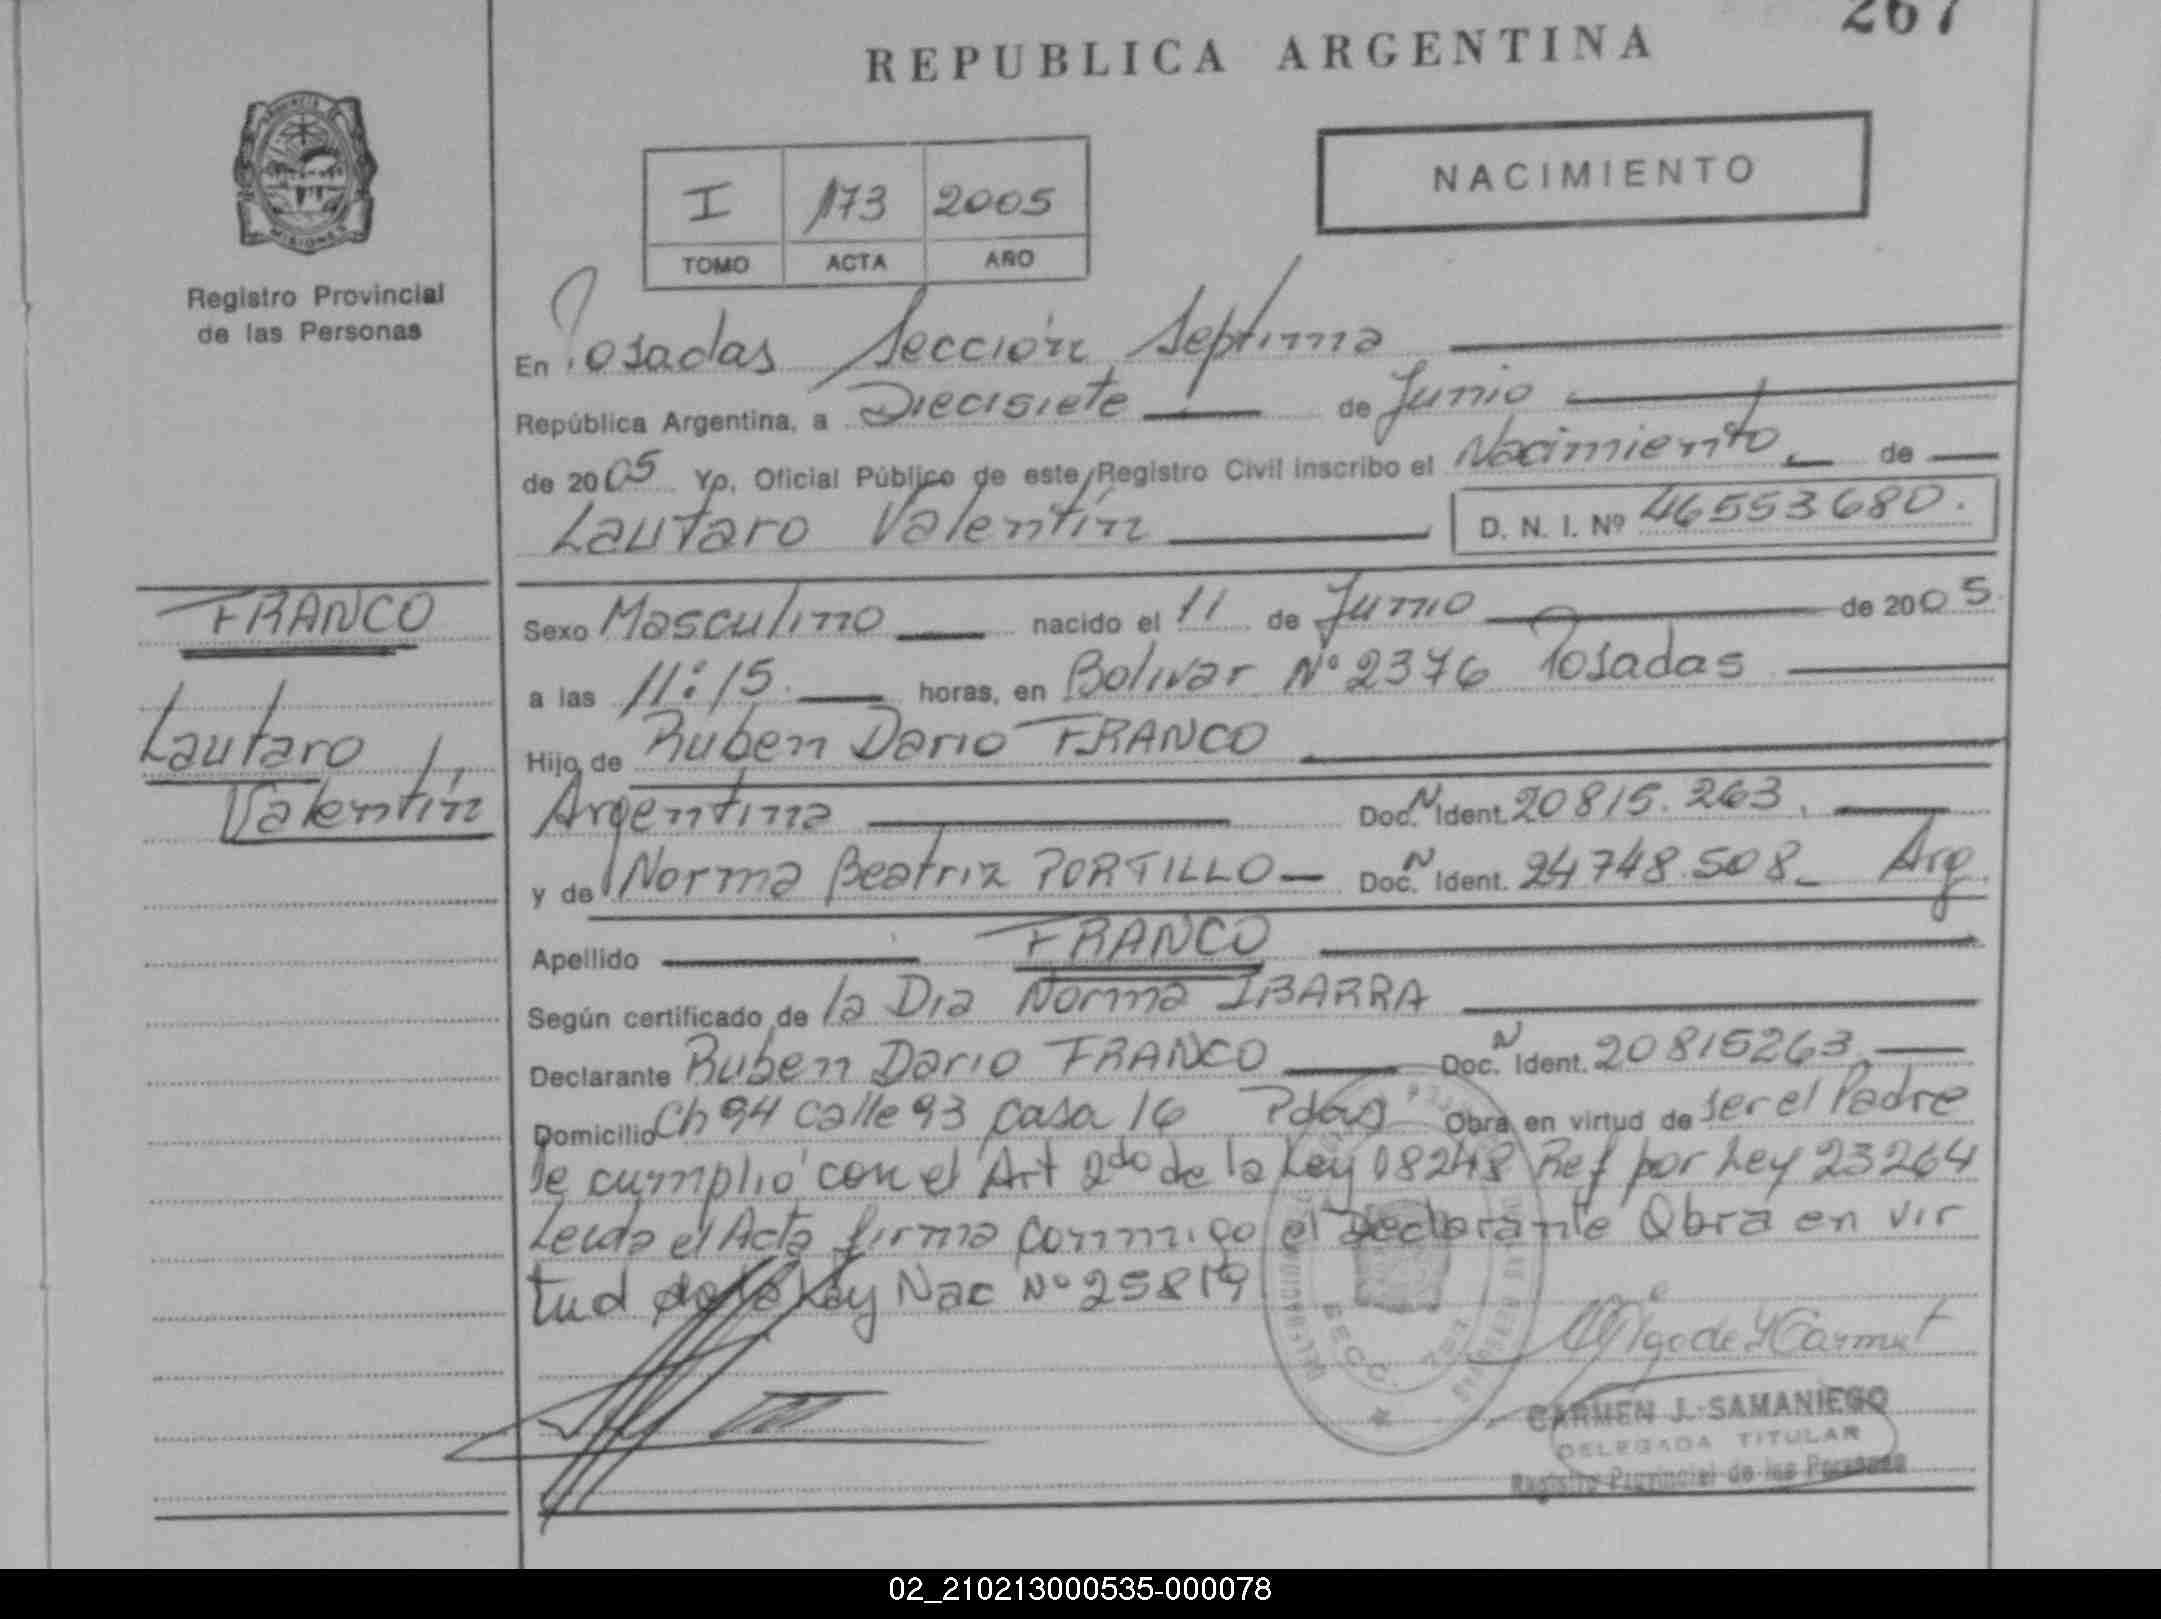 267
REPUBLICA ARGENTINA
NACIMIENTO
I 173 2005
TOMO ACTA AÑO
MISIONES
Registro Provincial
de las Personas
En Posadas Sección Septima
República Argentina, a Diecisiete de Junio
de 2005 Yo, Oficial Público de este Registro Civil inscribo el Nacimiento de
Lautaro Valentín D. N. I. Nº 46553680.
FRANCO
Lautaro
Valentín
Sexo Masculino nacido el 11 de Junio de 2005
a las 11:15. horas, en Bolivar Nº 2376 Posadas
Hijo de Ruben Dario FRANCO
Argentina Doc. N Ident. 20815.263.
y de Norma Beatriz PORTILLO Doc. N Ident. 24748.508 Arg
Apellido FRANCO
Según certificado de la Dra Norma IBARRA
Declarante Ruben Dario FRANCO Doc. N Ident. 20815263
Domicilio Ch 94 calle 93 casa 16 Pdas Obra en virtud de ser el Padre
Se cumplió con el Art 2do de la Ley 18248 Ref por Ley 23264
Leida el Acta firma conmigo el Declarante Obra en vir
tud de la Ley Nac Nº 25819
SECC. 7
CARMEN J. SAMANIEGO
DELEGADA TITULAR
Registro Provincial de las Personas
02_210213000535-000078